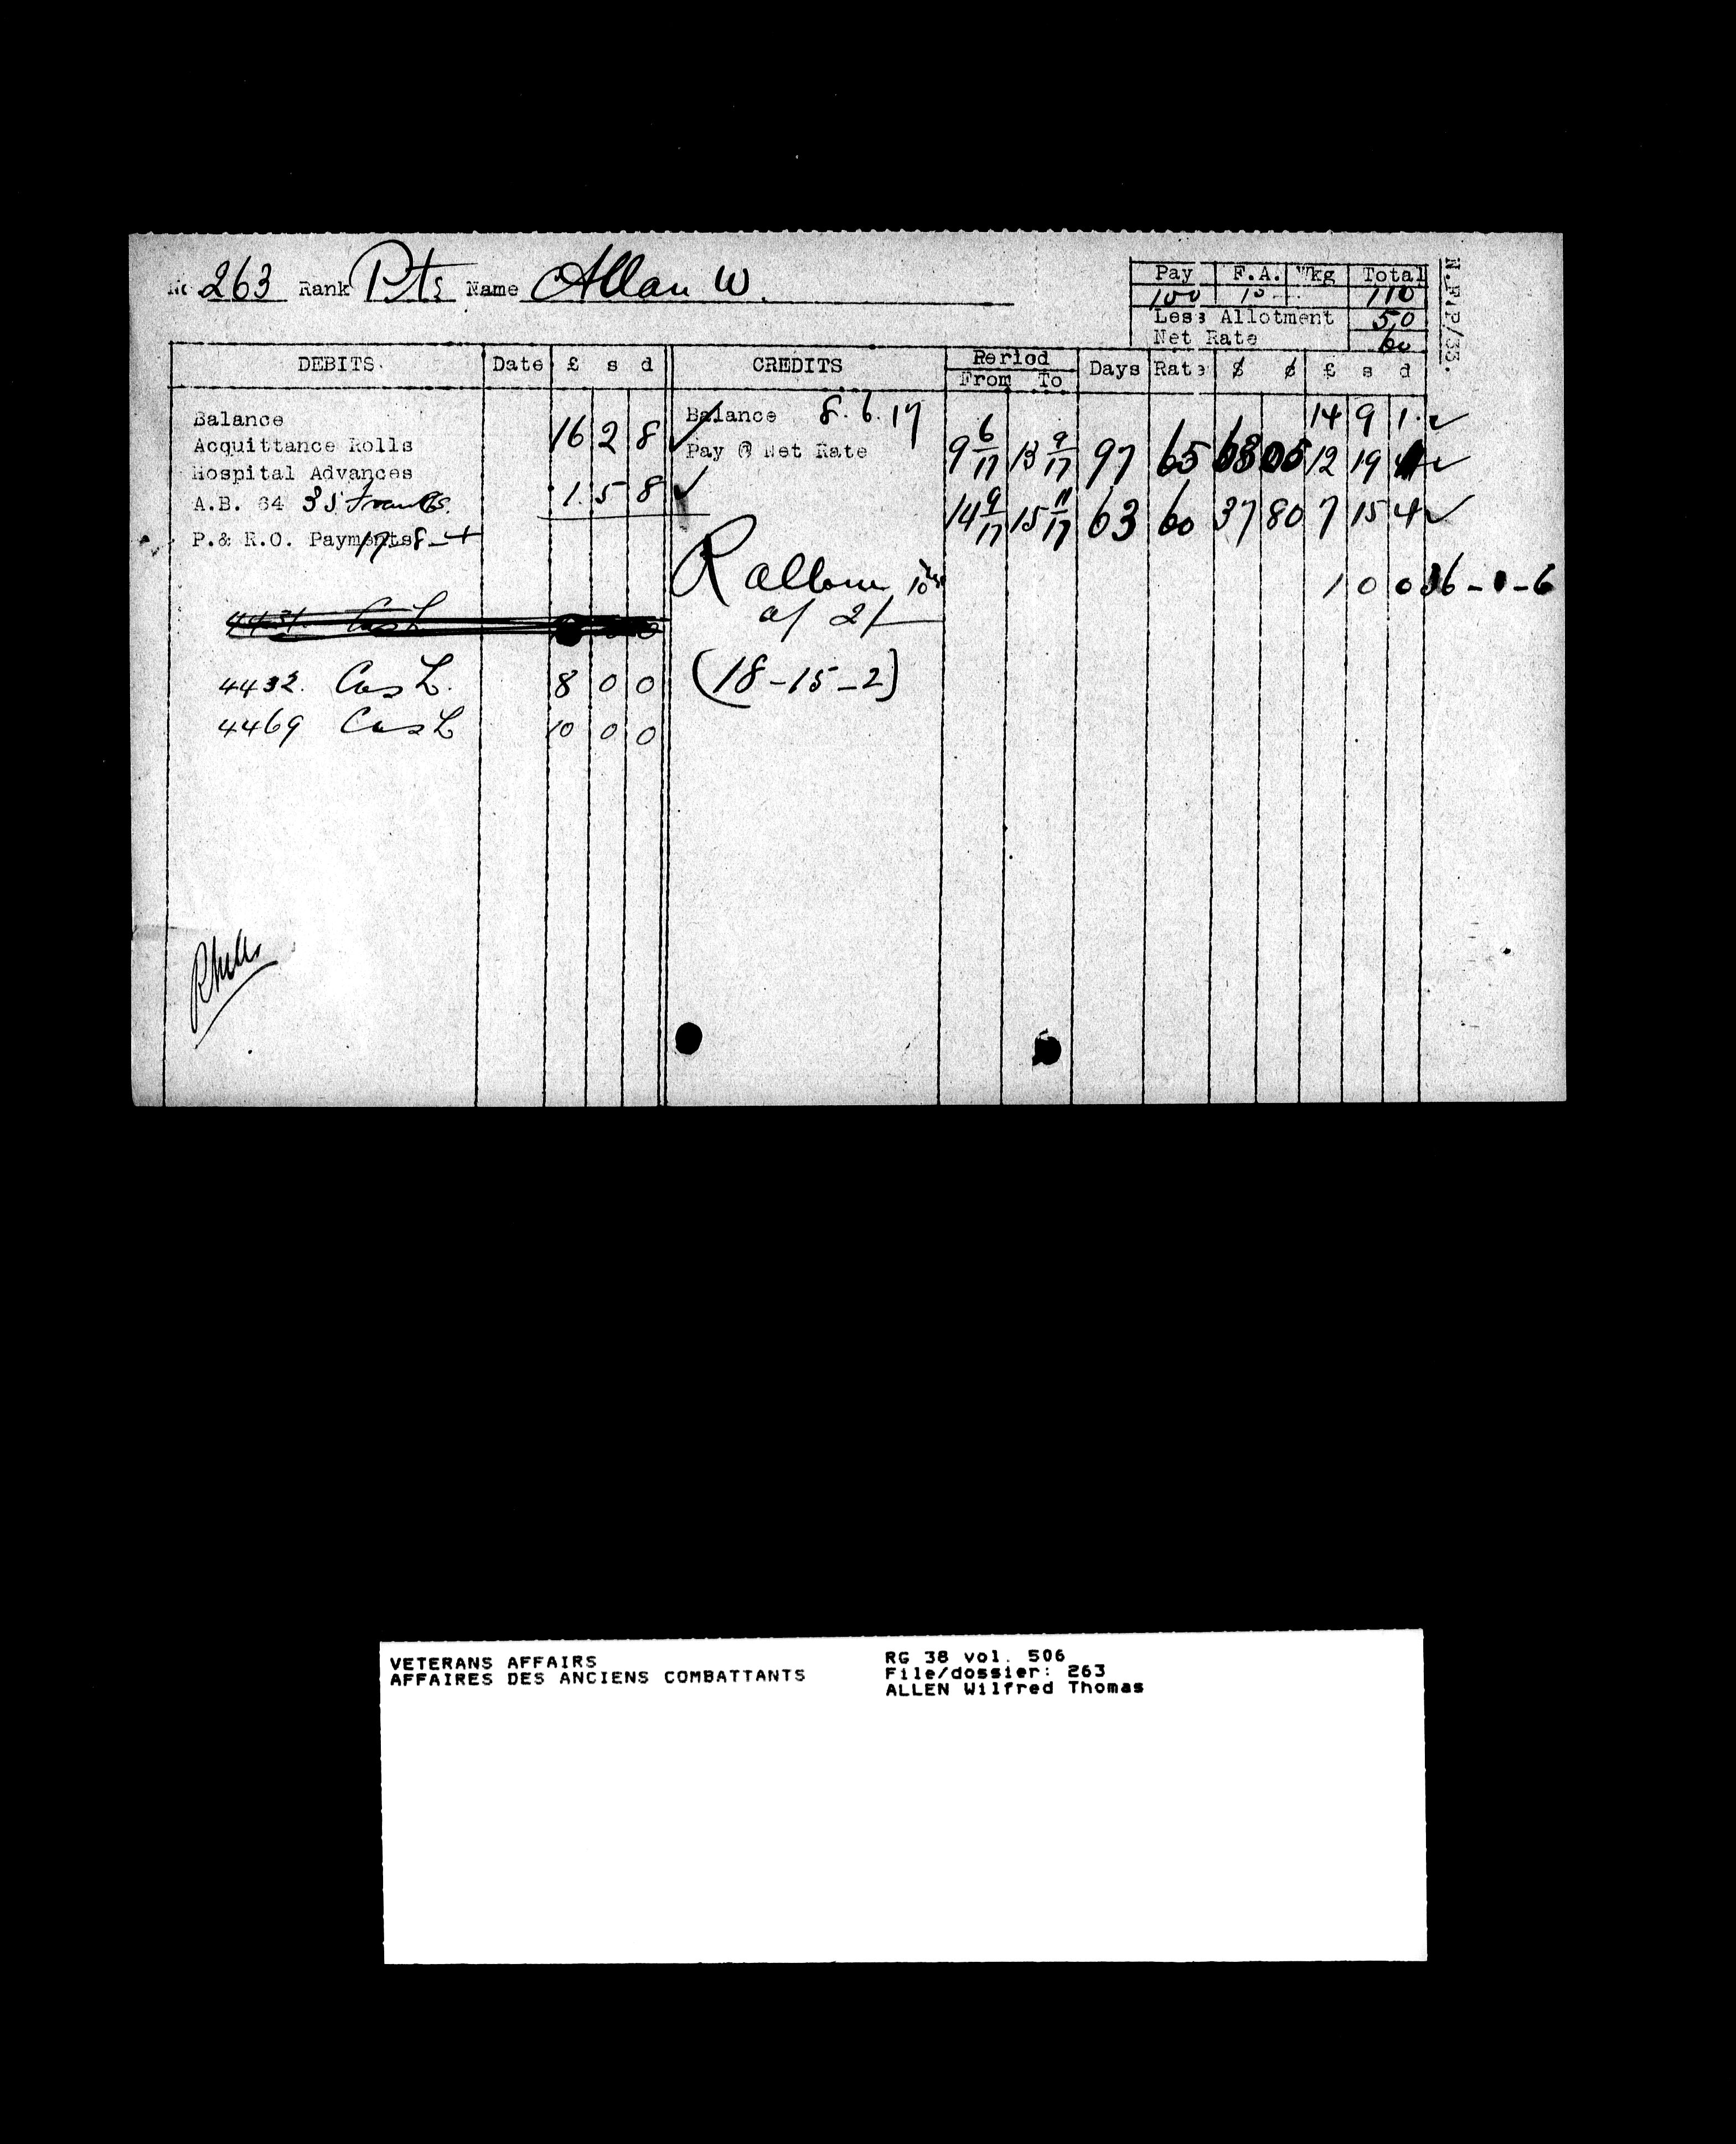 No 263 Rank Pte Name Allan W.
Pay F.A. Wkg Total
100 10 110
Less Allotment 50
Net Rate 60
N.F.P/33.
DEBITS. Date £ s d CREDITS Period From To Days Rate $ ¢ £ s d
Balance
Acquittance Rolls 16 2 8 ✓
Hospital Advances
A.B. 64 35 francs. 1. 5 8 ✓
P.& R.O. Payments 17-8-4
Cash
4432. Cash. 8 0 0
4469 Cash 10 0 0
Balance 8.6.17 14 9 1 ✓
Pay @ Net Rate 9 6/17 13 9/17 97 65 63 05 12 19 1 ✓
14 9/17 15 11/17 63 60 37 80 7 15 4 ✓
R allow 10 days 1 0 0 36-1-6
at 2/-
(18-15-2)
VETERANS AFFAIRS
AFFAIRES DES ANCIENS COMBATTANTS
RG 38 vol. 506
File/dossier: 263
ALLEN Wilfred Thomas